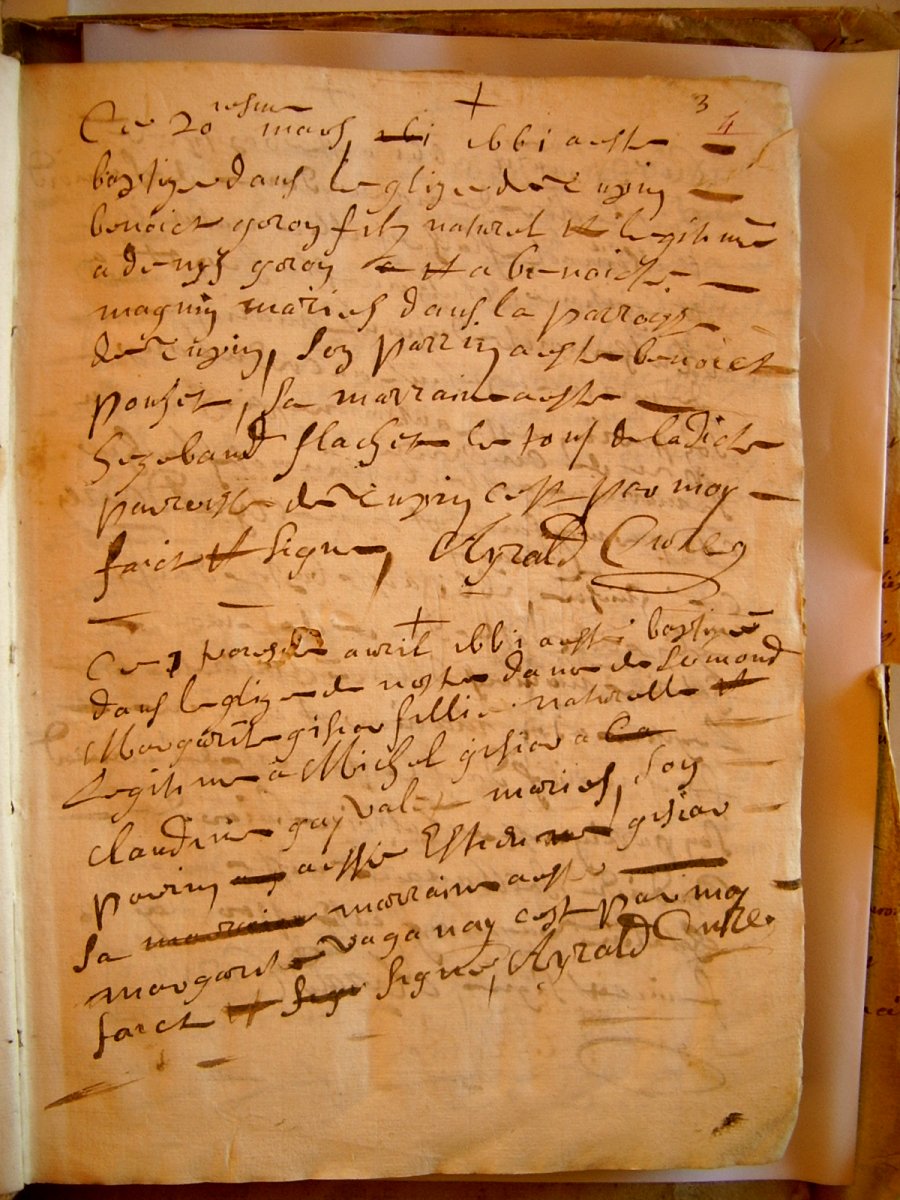 3
4
Ce 20 iesme mars 1661 a este
baptize dans leglize de Cuzin
benoict goron filz naturel et legitime
a denys goron et a benoicte
magnin mariés dans la parroisse
de Cuzin, son parrin a este benoict
pouset, sa marraine a este
flachet le tout de ladicte
parroisse de Cuzin cest par moy
faict et signe, Ayrald Cure
Ce avril 1661 a esté baptizeé
dans leglize de nostre dame de Semond
Margarite gisiar fillie naturelle et
Legitime a Michel gisiar a
claudine gay valet mariés, son
parrin a esste Estienne gisiar
sa marraine a este
margarite vaganay cest par moy
faict et signé, Ayrald Cure